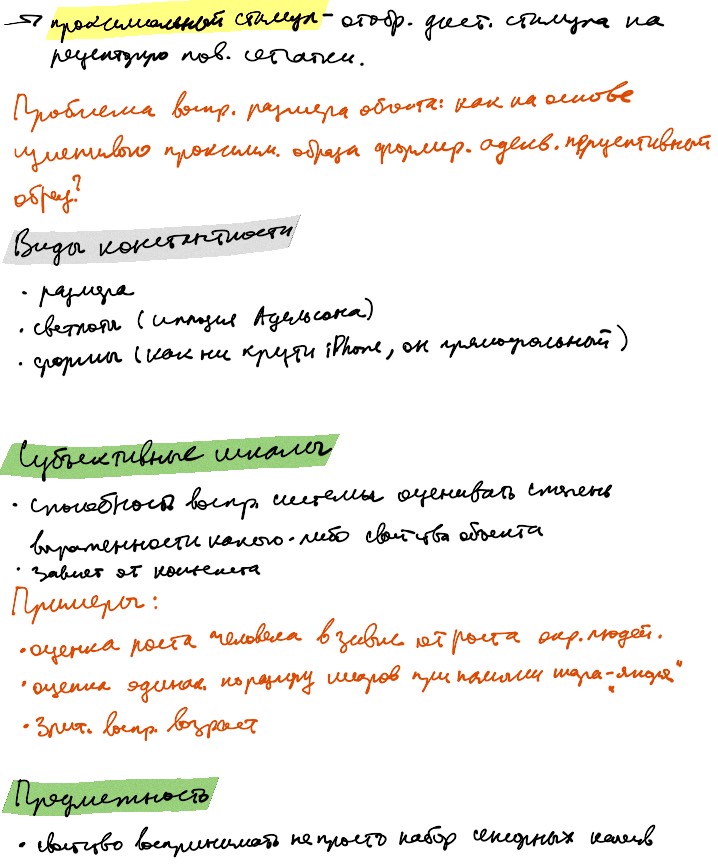 → проксимальный стимул - отобр. дист. стимула на
рецепторную пов. сетчатки.
Проблема воспр. размера объекта: как на основе
изменчивого проксим. образа формир. адекв. перцептивный
образ?
Виды константности
• размера
• светлоты (иллюзия Адельсона)
• формы (как ни крути iPhone, он прямоугольный)
Субъективные шкалы
• способность воспр. системы оценивать степень
выраженности какого-либо свойства объекта
• Зависит от контекста
Примеры:
• оценка роста человека в завис. от роста окр. людей.
• оценка одинак. по размеру шаров при наличии шара-"якоря"
• Зрит. воспр. возраст
Предметность
• свойство воспринимать не просто набор сенсорных качеств